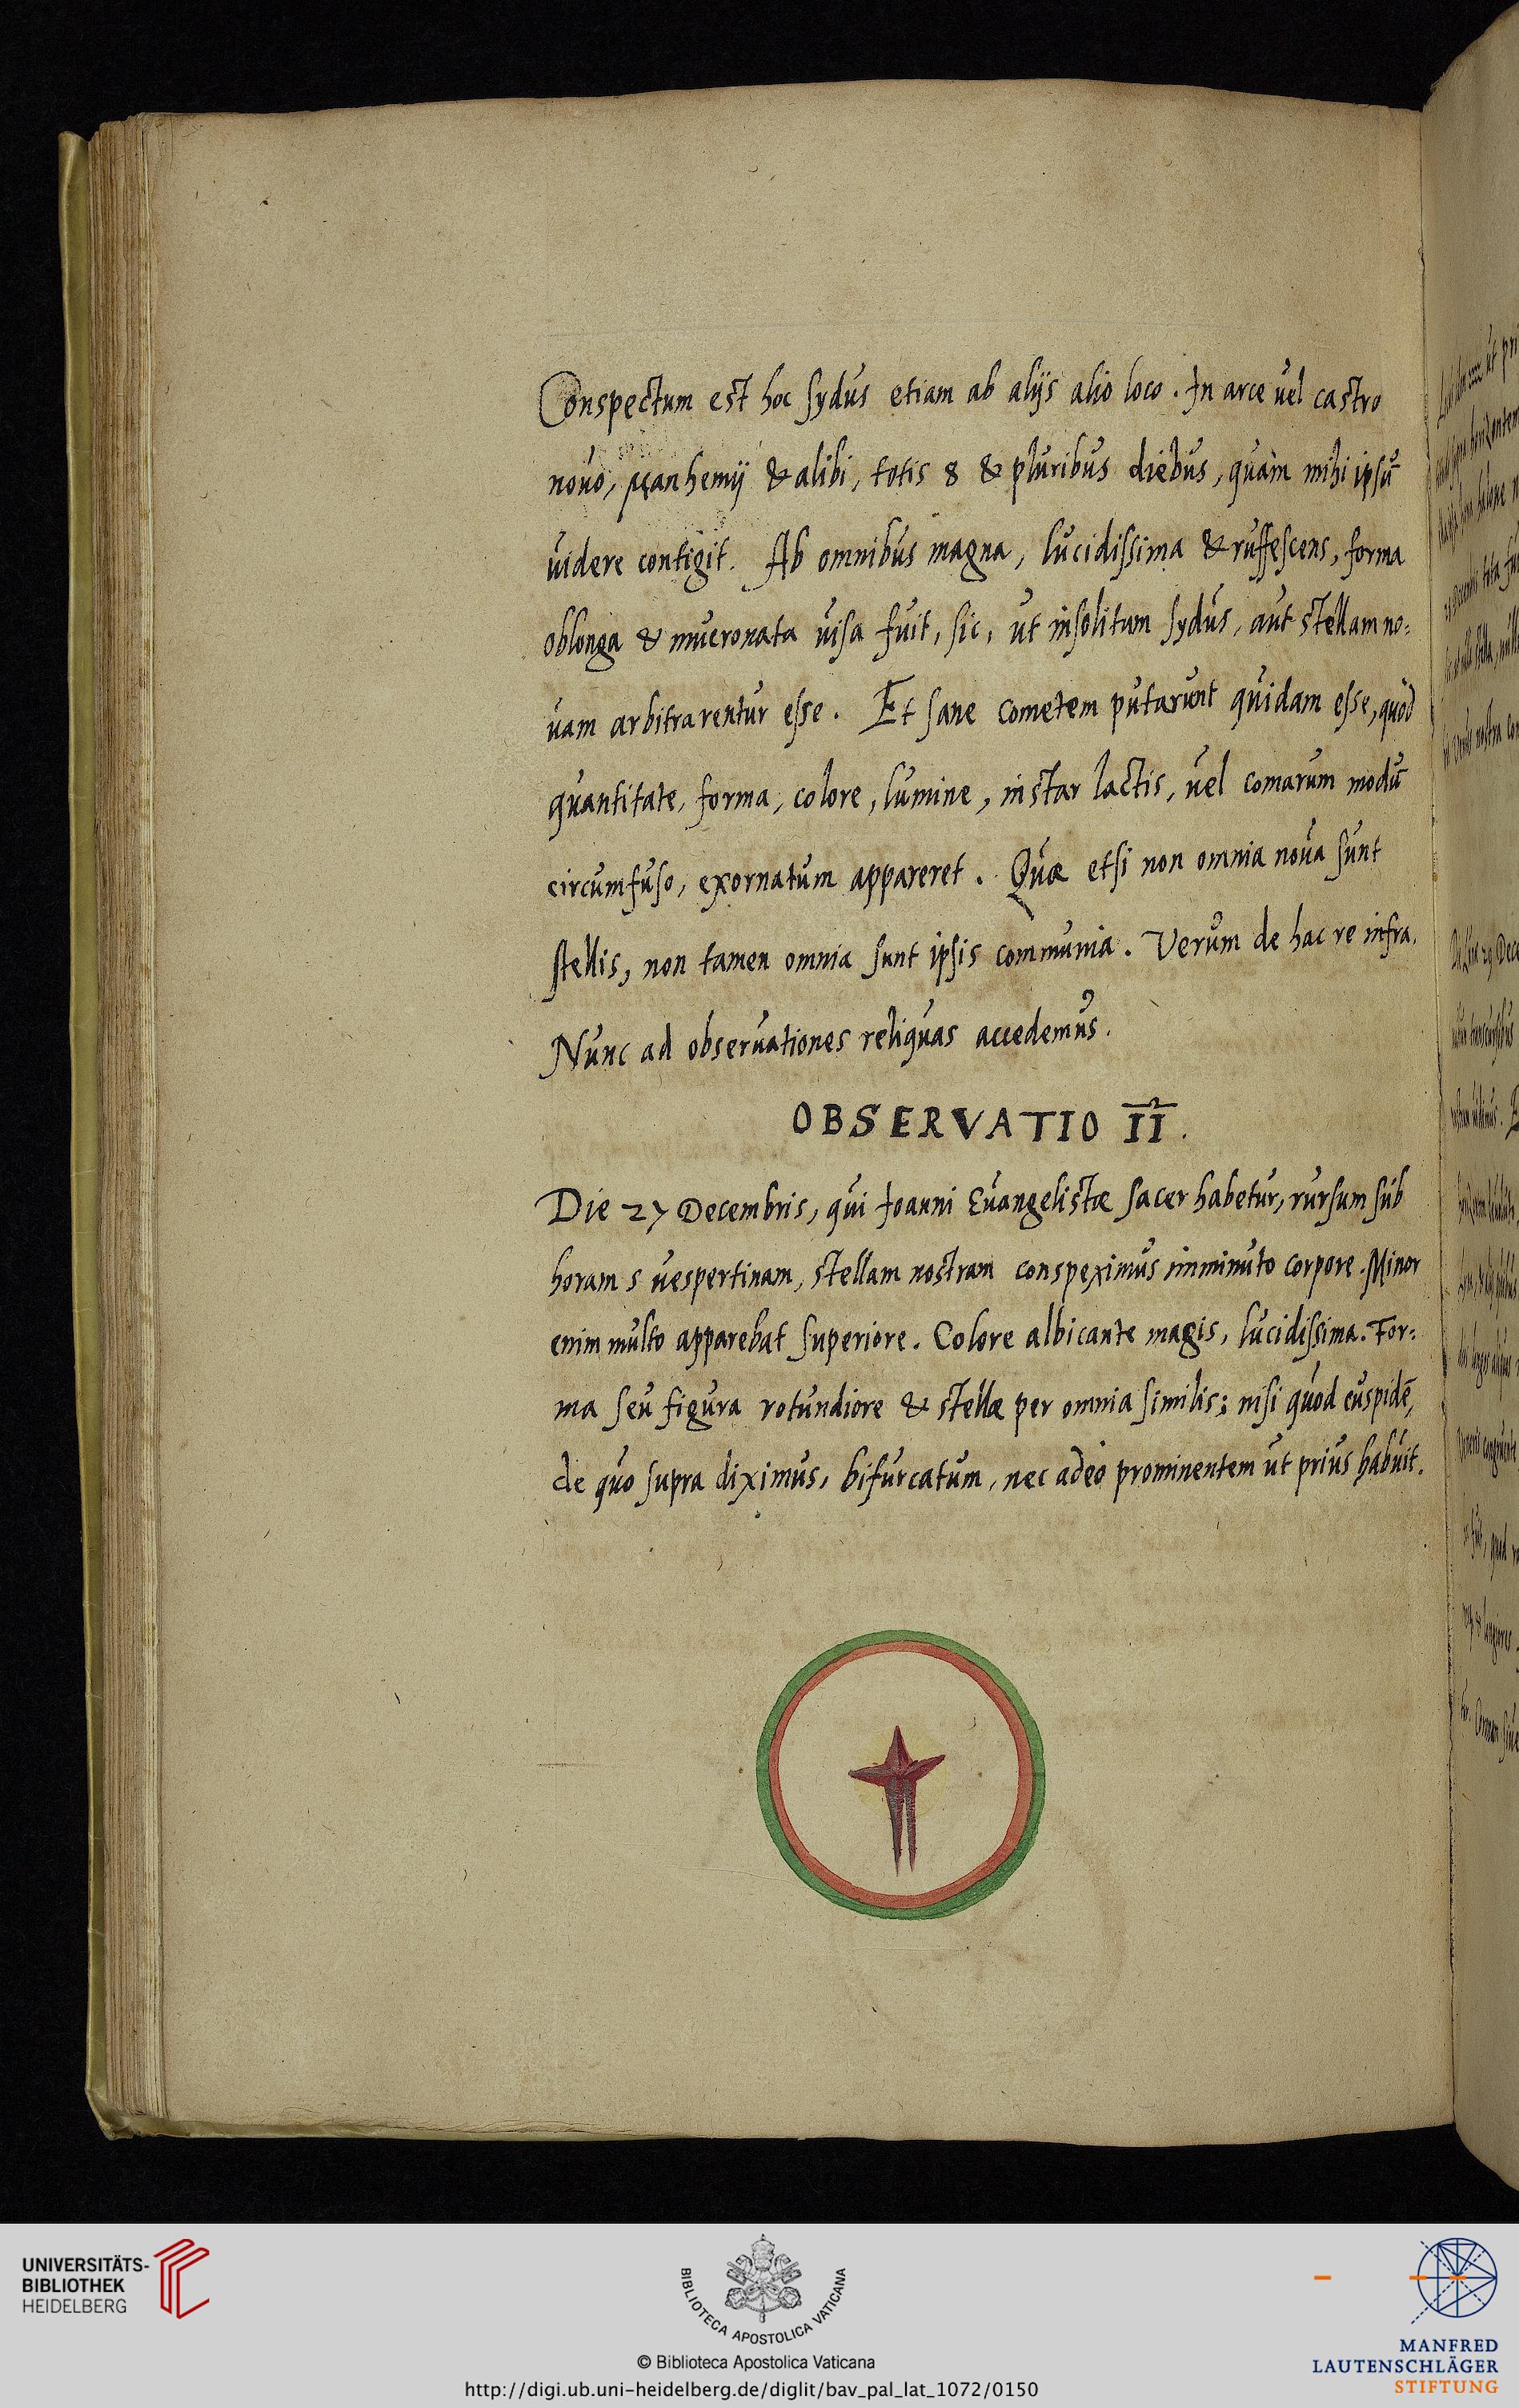 Conspectum est hoc sydus etiam ab alijs alio loco. In arce uel castro
nouo, Manhemij & alibi, totis 8 & pluribus diebus, quàm mihi ipsū
uidere contigit. Ab omnibus magna, lucidissima & ruffescens, forma
oblonga & mucronata uisa fuit, sic, ut insolitum sydus, aut stellam no=
uam arbitrarentur esse. Et sane cometem putarunt quidam esse, quòd
quantitate, forma, colore, lumine, instar lactis, uel comarum modū
circumfuso, exornatum appareret. Quæ etsi non omnia noua sunt
stellis, non tamen omnia sunt ipsis communia. Verum de hac re infra.
Nunc ad obseruationes reliquas accedemus.
OBSERVATIO II.
Die 27 Decembris, qui Joanni Euangelistæ sacer habetur, rursum sub
horam 5 uespertinam, stellam nostram conspeximus imminuto corpore. Minor
enim multo apparebat superiore. Colore albicante magis, lucidissima. For=
ma seu figura rotundiore & stellæ per omnia similis; nisi quod cuspidē,
de quo supra diximus, bifurcatum, nec adeò prominentem ut prius habuit.
UNIVERSITÄTS-
BIBLIOTHEK
HEIDELBERG
BIBLIOTECA APOSTOLICA VATICANA
© Biblioteca Apostolica Vaticana
http://digi.ub.uni-heidelberg.de/diglit/bav_pal_lat_1072/0150
MANFRED
LAUTENSCHLÄGER
STIFTUNG